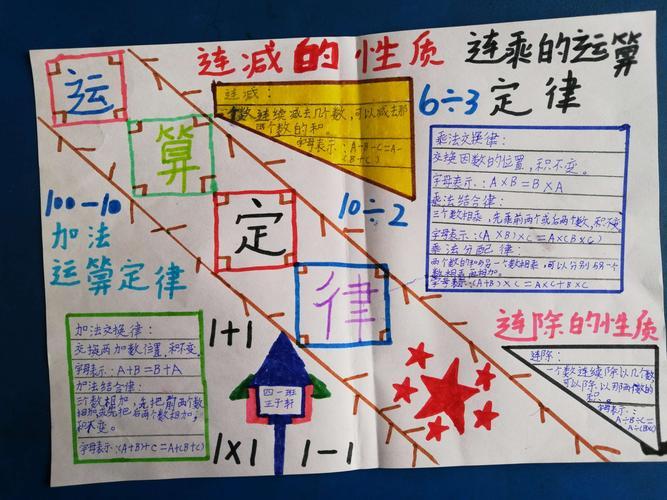 运
算
定
律
连减的性质
连减:
一个数连续减去几个数,可以减去那
两个数的和。
字母表示:A-B-C=A-
(B+C)
连乘的运算
定律
6÷3
乘法交换律:
交换因数的位置,积不变。
字母表示:A×B=B×A
乘法结合律:
三个数相乘,先乘前两个或后两个数,积不变
字母表示:(A×B)×C=A×(B×C)
乘法分配律:
两个数的和与一个数相乘,可以分别与另一个
数相乘再相加。
字母表示:(A+B)×C=A×C+B×C
100-10
10÷2
加法
运算定律
加法交换律:
交换两加数位置,和不变。
字母表示:A+B=B+A
加法结合律:
三个数相加,先把前两个数
相加或先把后两个数相加,
和不变。
字母表示:(A+B)+C=A+(B+C)
1+1
四一班
王子轩
1×1
1-1
连除的性质
连除:
一个数连续除以几个数
可以除以那两个数的
积。
字母表示:
A÷B÷C=
A÷(B×C)